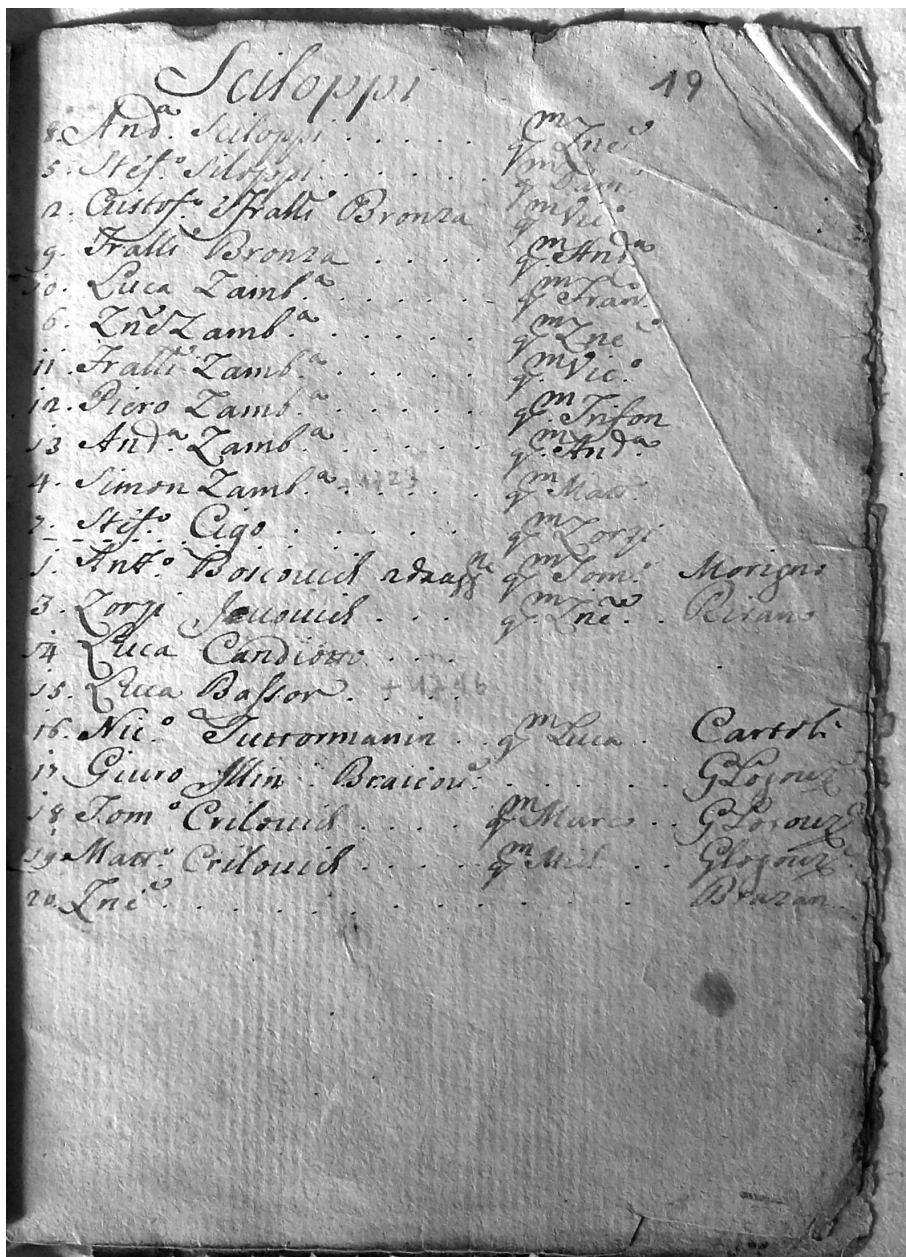 Sciloppi 19
8. Andᵃ. Sciloppi . . . . . qᵐ Zneᵒ
5. Stefᵒ. Siloppi . . . . . . qᵐ Damᵒ
2. Cristofᵒ. e Fralli Bronza qᵐ Vicᵒ
9. Fralli Bronza . . . . qᵐ Andᵃ
10. Luca Zambᵃ . . . . . . qᵐ Fran.
6. Zneᵒ Zambᵃ . . . . . . qᵐ Zneᵒ
11. Fralli Zambᵃ . . . . . . qᵐ Vicᵒ.
12. Piero Zambᵃ . . . . . . qᵐ Trifon
13. Andᵃ Zambᵃ . . . . . . qᵐ Andᵃ.
4. Simon Zambᵃ . . . . qᵐ Matt.
7. Stefᵒ Cigo . . . . . . qᵐ Zorzi
1. Antᵒ. Boscovich qᵐ Tomᵒ. Morigno
3. Zorzi . . . qᵐ Zneᵒ . . Pirano
14 Luca Candiotto . . .
15. Luca Bassor . + 1746
16. Nicᵒ. Tuttormanin . qᵐ Luca . Cartoli
17 Giuro Illin . Braicov. . . . . . .
18 Tomᵒ Crilovich . . . . qᵐ Marco . .
19. Mattᵒ. Crilovich . . . . qᵐ Mich . .
20. Zneᵒ . . . . . . . . . . . Brazan